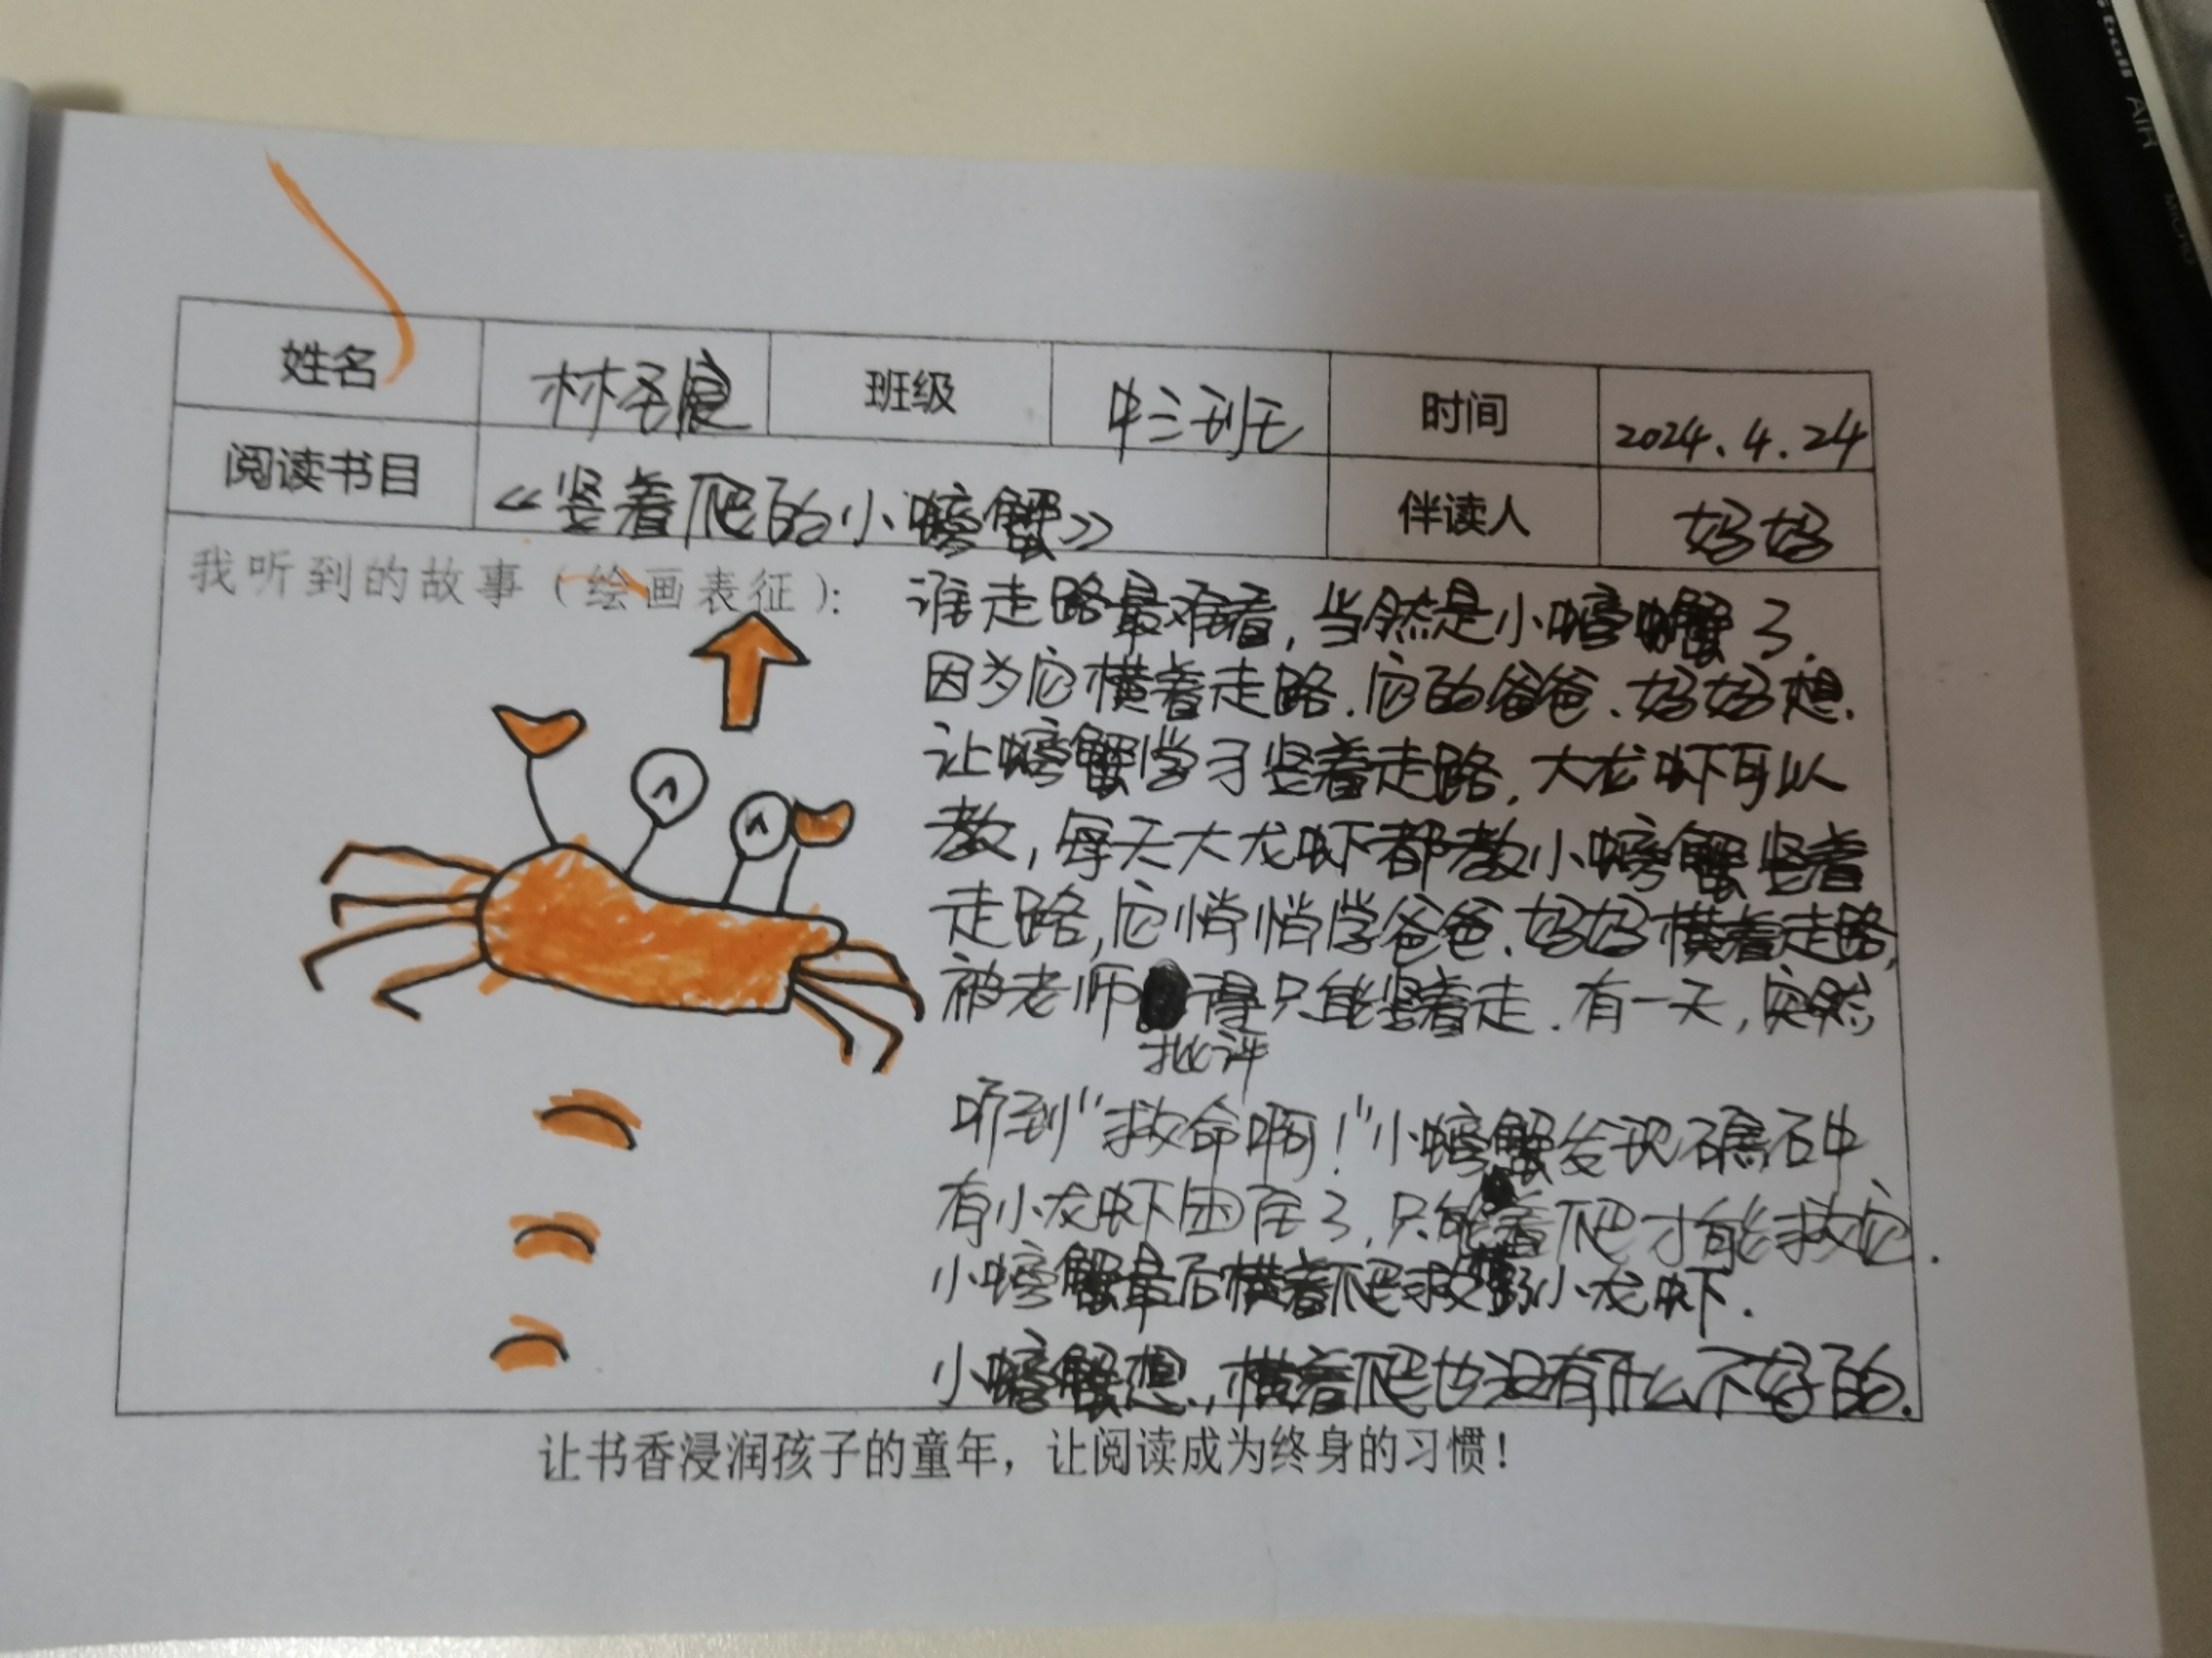 姓名 林圣宸 班级 中三班 时间 2024.4.24
阅读书目 《竖着爬的小螃蟹》 伴读人 妈妈
我听到的故事（绘画表征）：
谁走路最难看，当然是小螃蟹了.
因为它横着走路.它的爸爸、妈妈想.
让螃蟹学习竖着走路，大龙虾可以
教，每天大龙虾都教小螃蟹竖着
走路，它悄悄学爸爸、妈妈横着走路，
被老师 得只能竖着走.有一天，突然
批评
听到“救命啊！”小螃蟹发现礁石中
有小龙虾困在了，只能 着爬才能救它.
小螃蟹最后横着爬救 小龙虾.
小螃蟹想，横着爬也没有什么不好的.
让书香浸润孩子的童年，让阅读成为终身的习惯！
AIR
MICRO